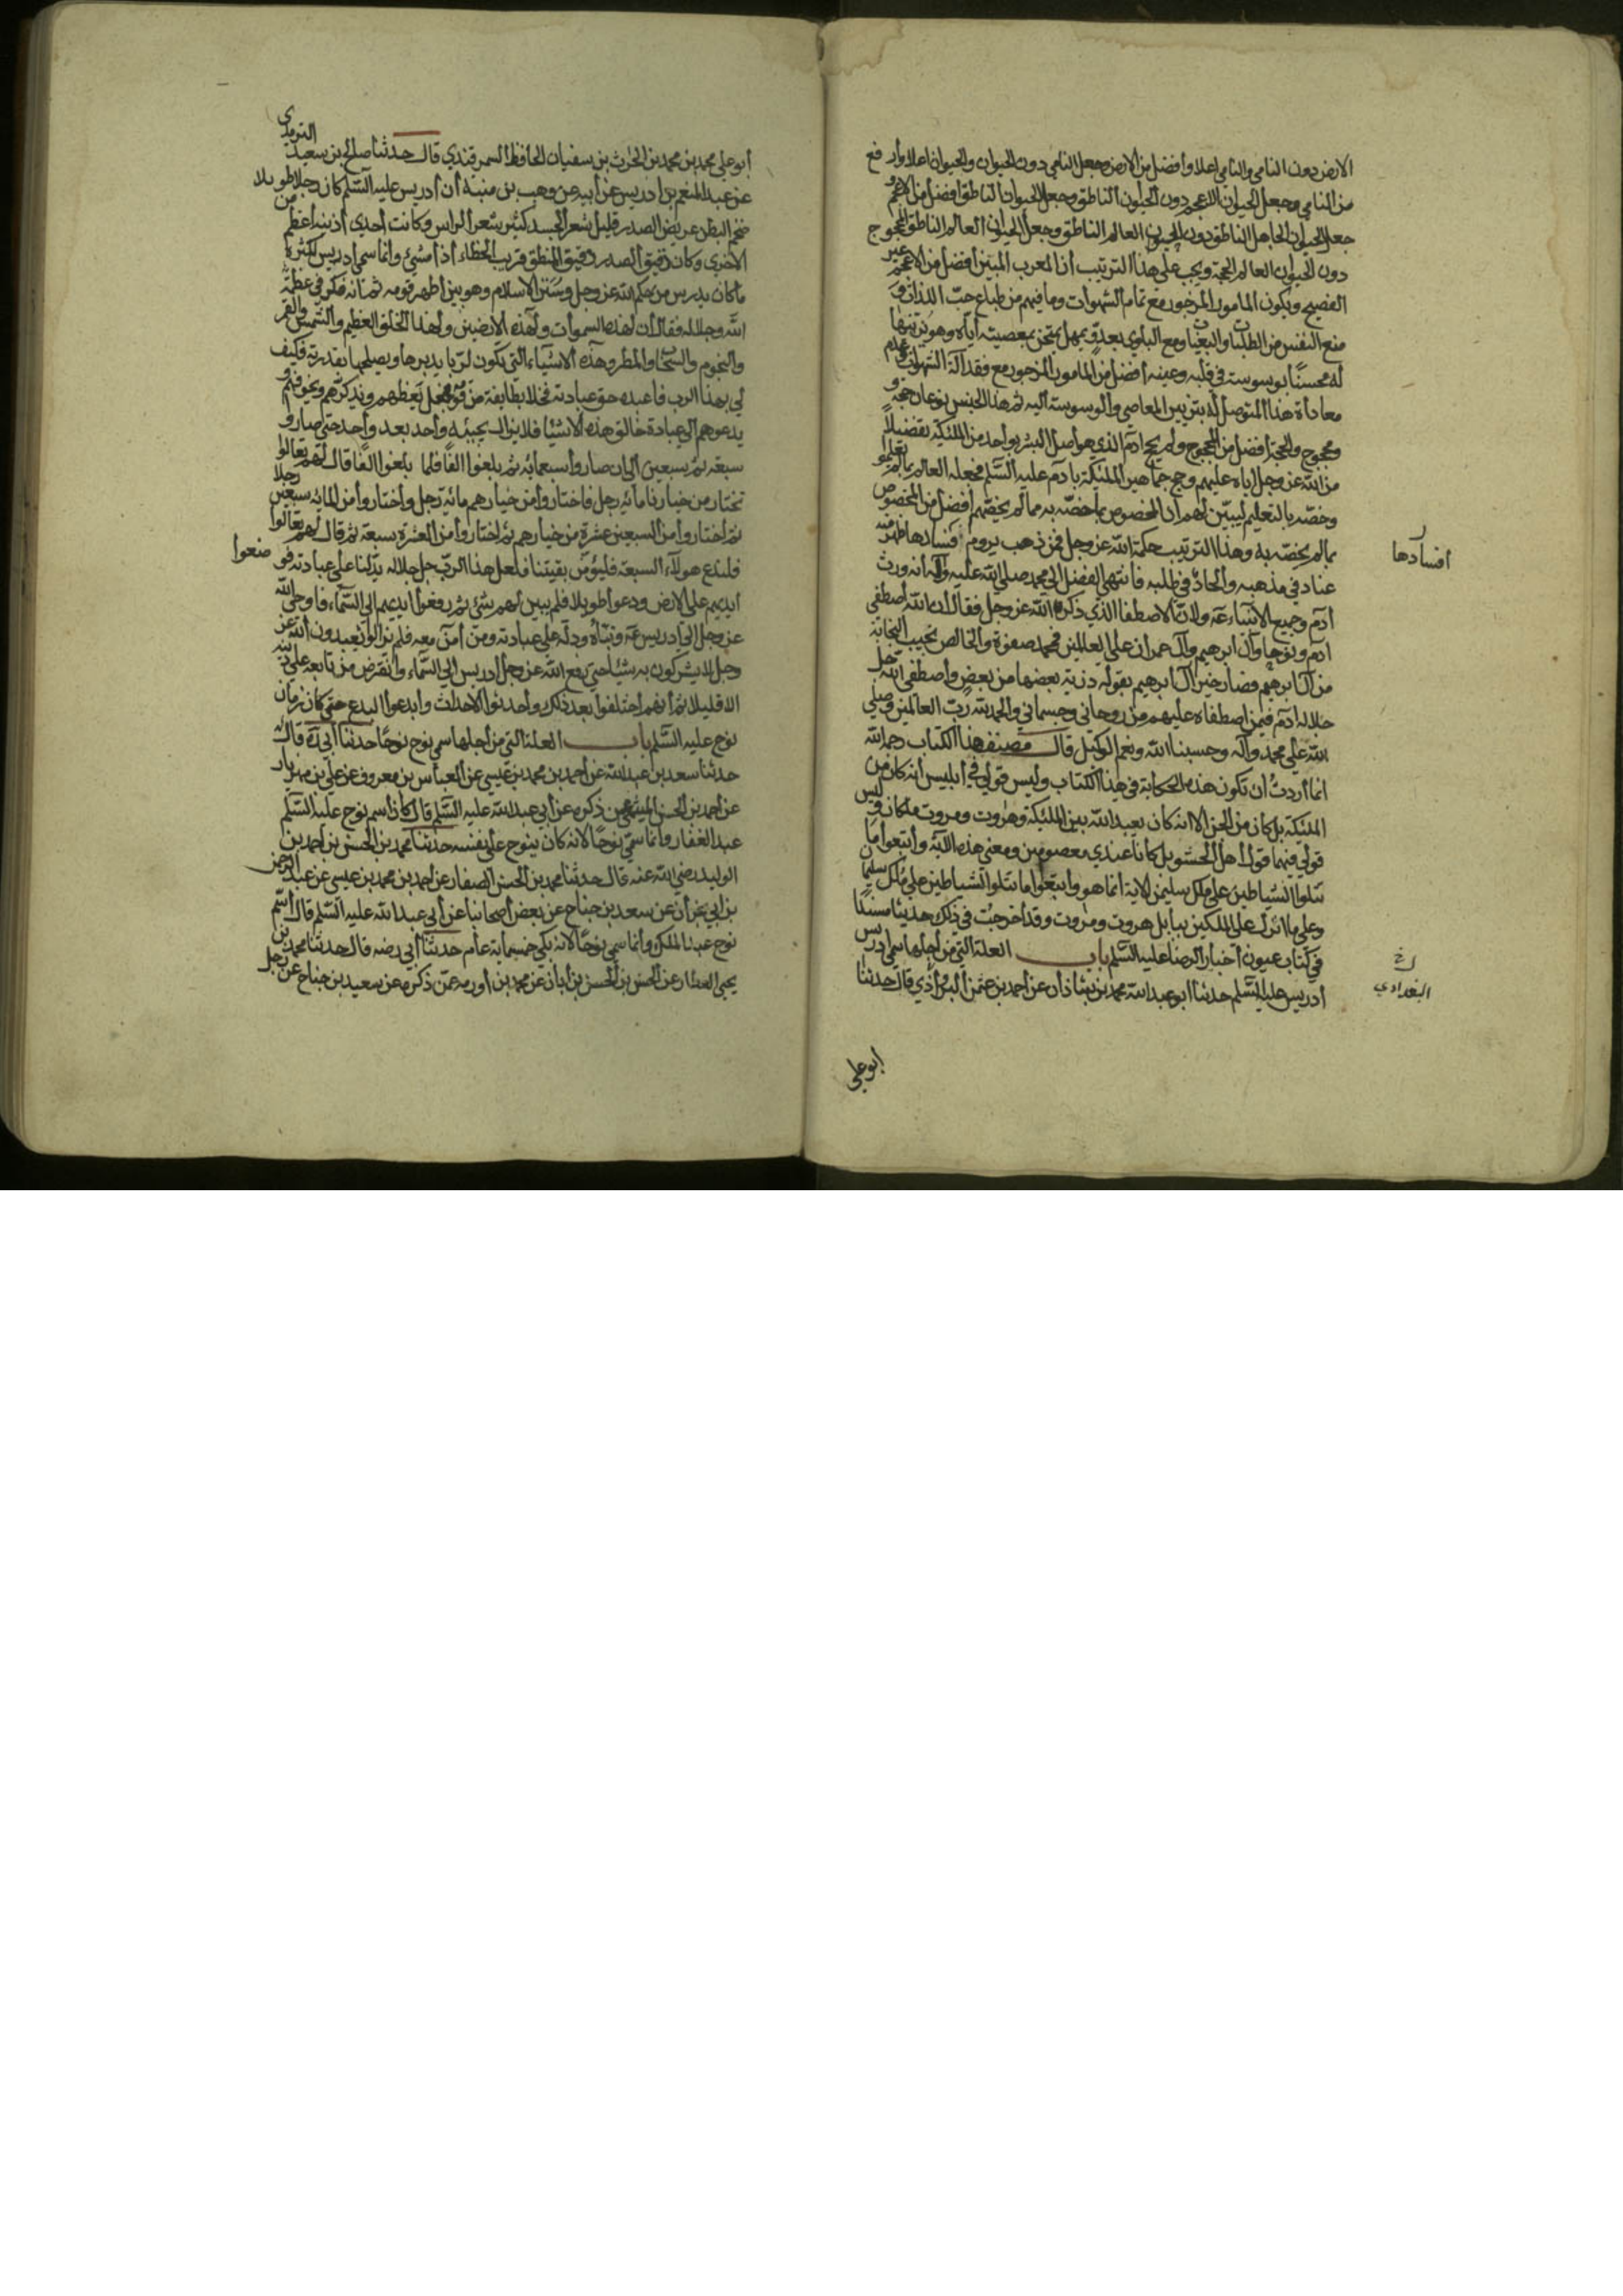 الارض دون النامي والنامي اعلا وأفضل من الارض وجعل النامي دون الحيوان والحيوان اعلا وأرفع
من النامي وجعل الحيوان الاعجم دون الحيوان الناطق وجعل الحيوان الناطق افضل من الاعجم و
جعل الحيوان الجاهل الناطق دون الحيوان العالم الناطق وجعل الحيوان العالم الناطق المحجوج
دون الحيوان العالم الحجة ويجب على هذا الترتيب أن المعرب المبين أفضل من الاعجم غير
الفصيح ويكون المامور المزجور مع تمام الشهوات وما فيهم من طباع حب اللذات و
منع النفس من الطلبات والبغيات ومع البلوي بعدو يمهل يمتحن بمعصيته اياه وهو يزينها
له محسنا بوسوسته في قلبه وعينه أفضل من المامور المزجور مع فقد آلة الشهوات وعدم
معاداة هذا المتوصل له بتزيين المعاصي والوسوسة اليه ثم هذا الجنس نوعان حجة و
محجوج والحجة افضل من المحجوج ولم يحج ادم الذي هو أصل البشر بواحد من الملئكة تفضيلا
من الله عز وجل اياه عليهم وحج جماهير الملئكة بادم عليه السلم فجعله العالم بما لم يعلموا
وخصه بالتعليم ليبين لهم ان المخصوص بما خصه به مما لم يخصهم أفضل من المخصوص
بما لم يخصه به وهذا الترتيب حكمة الله عز وجل فمن ذهب يروم فسادها ظهر منه
افسادها
عناد في مذهبه والحاد في طلبه فانتهى الفضل الي محمد صلى الله عليه وآله لانه ورث
آدم وجميع الانبياء ع ولان الاصطفا الذي ذكره الله عز وجل فقال ان الله أصطفى
آدم ونوحا وآل ابرهيم وآل عمران على العالمين فمحمد صفوة والخالص نجيب النجابة
من آل ابرهيم فصار خير آل ابرهيم بقوله ذرية بعضها من بعض وأصطفى الله جل
جلاله ادم فيمن اصطفاه عليهم من روحاني وجسماني والحمد لله رب العالمين وصلي
الله على محمد وآله وحسبنا الله ونعم الوكيل قال مصنف هذا الكتاب رحمه الله
انما أردت ان تكون هذه الحكاية في هذا الكتاب وليس قولي في أبليس أنه كان من
الملئكة بل كان من الجن الا انه كان يعبد الله بين الملئكة وهروت ومروت ملكان وليس
قولي فيهما قول أهل الحشو بل كانا عندي معصومين ومعنى هذه الآية وأتبعوا ما
تتلوا الشياطين على ملك سليمن الاية انما هو واتبعوا ما تتلوا الشياطين على ملك سليمان
وعلى ما انزل على الملكين ببابل هروت ومروت وقد أخرجت في ذلك حديثا مسندا
في كتاب عيون أخبار الرضا عليه السلم باب العلة التي من أجلها سمي ادريس
أدريس عليه السلم حدثنا ابو عبد الله محمد بن شاذان عن احمد بن عثمن البراوذي قال حدثنا
البغدادي
ابو على
الترمذي
أبو علي محمد بن محمد بن الحرث بن سفيان الحافظ السمرقندي قال حدثنا صالح بن سعيد
عن عبد المنعم بن ادريس عن أبيه عن وهب بن منبة أن أدريس عليه السلم كان رجلا طويلا
ضخم البطن عريض الصدر قليل شعر الجسد كثير شعر الراس وكانت أحدي أذنيه أعظم من
الاخري وكان دقيق الصدر دقيق المنطق قريب الخطاء اذا مشي وانما سمي ادريس لكثرة
ما كان يدرس من حكم الله عز وجل وسنن الاسلام وهو بين أظهر قومه ثم انه فكر في عظمة
الله وجلاله فقال أن لهذه السموات ولهذه الأرضين ولهذا الخلق العظيم والشمس والقمر
والنجوم والسحاب والمطر وهذه الاشياء التي تكون لربا يدبرها ويصلحها بقدرته فكيف
لي بهذا الرب فاعبده حق عبادته فخلا بطايفة من قومه فجعل يعظهم ويذكرهم ويخوفهم و
يدعوهم إلي عبادة خالق هذه الاشيا فلا يزال يجيبه واحد بعد واحد حتي صاروا
سبعة ثم سبعين الي ان صاروا سبعمائة ثم بلغوا الفا فلما بلغوا الفا قال لهم تعالوا
نختار من خيارنا مائة رجل فاختاروا من خيارهم مائة رجل واختاروا من المائة سبعين رجلا
ثم اختاروا من السبعين عشرة من خيارهم ثم اختاروا من العشرة سبعة ثم قال لهم تعالوا
فليدع هولاء السبعة فليؤمن بقيتنا فلعل هذا الرب جل جلاله يدلنا على عبادته فوضعوا
أيديهم على الارض ودعوا طويلا فلم يبين لهم شئ ثم رفعوا أيديهم الي السماء فاوحى الله
عز وجل الي ادريس ع ونبأه ودله على عبادته ومن آمن معه فلم يزالوا يعبدون الله عز
وجل لا يشركون به شيئا حتي رفع الله عز وجل أدريس الي السماء وانقرض من تابعه على دينه
الا قليلا ثم أنهم أختلفوا بعد ذلك وأحدثوا الاحداث وابدعوا البدع حتى كان زمان
نوح عليه السلم باب العلة التي من أجلها سمي نوح نوحا حدثنا أبي ره قال
حدثنا سعد بن عبد الله عن احمد بن محمد بن عيسي عن العباس بن معروف عن علي بن مهزيار
عن احمد بن الحسن الميثمي عمن ذكره عن أبي عبد الله عليه السلم قال كان اسم نوح عليه السلم
عبد الغفار وانما سمي نوحا لانه كان ينوح على نفسه حدثنا محمد بن الحسن بن احمد بن
الوليد رضي الله عنه قال حدثنا محمد بن الحسن الصفار عن احمد بن محمد بن عيسى عن عبد الرحمن
بن ابي نجران عن سعيد بن جناح عن بعض أصحابنا عن أبي عبد الله عليه السلم قال أسم
نوح عبد الملك وانما سمي نوحا لانه بكي خمسماية عام حدثنا أبي رضه قال حدثنا محمد بن
يحيى العطار عن الحسن بن الحسن بن أبان عن محمد بن أورمه عمن ذكره عن سعيد بن جناح عن رجل